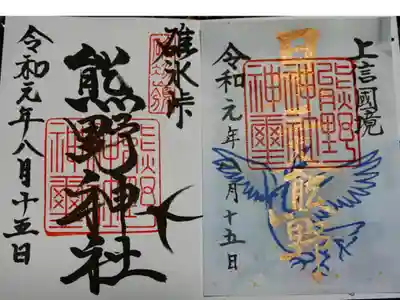 碓氷峠
熊野神社
熊野神璽
令和元年八月十五日
上信國境
熊野
熊野神璽
令和元年
月十五日